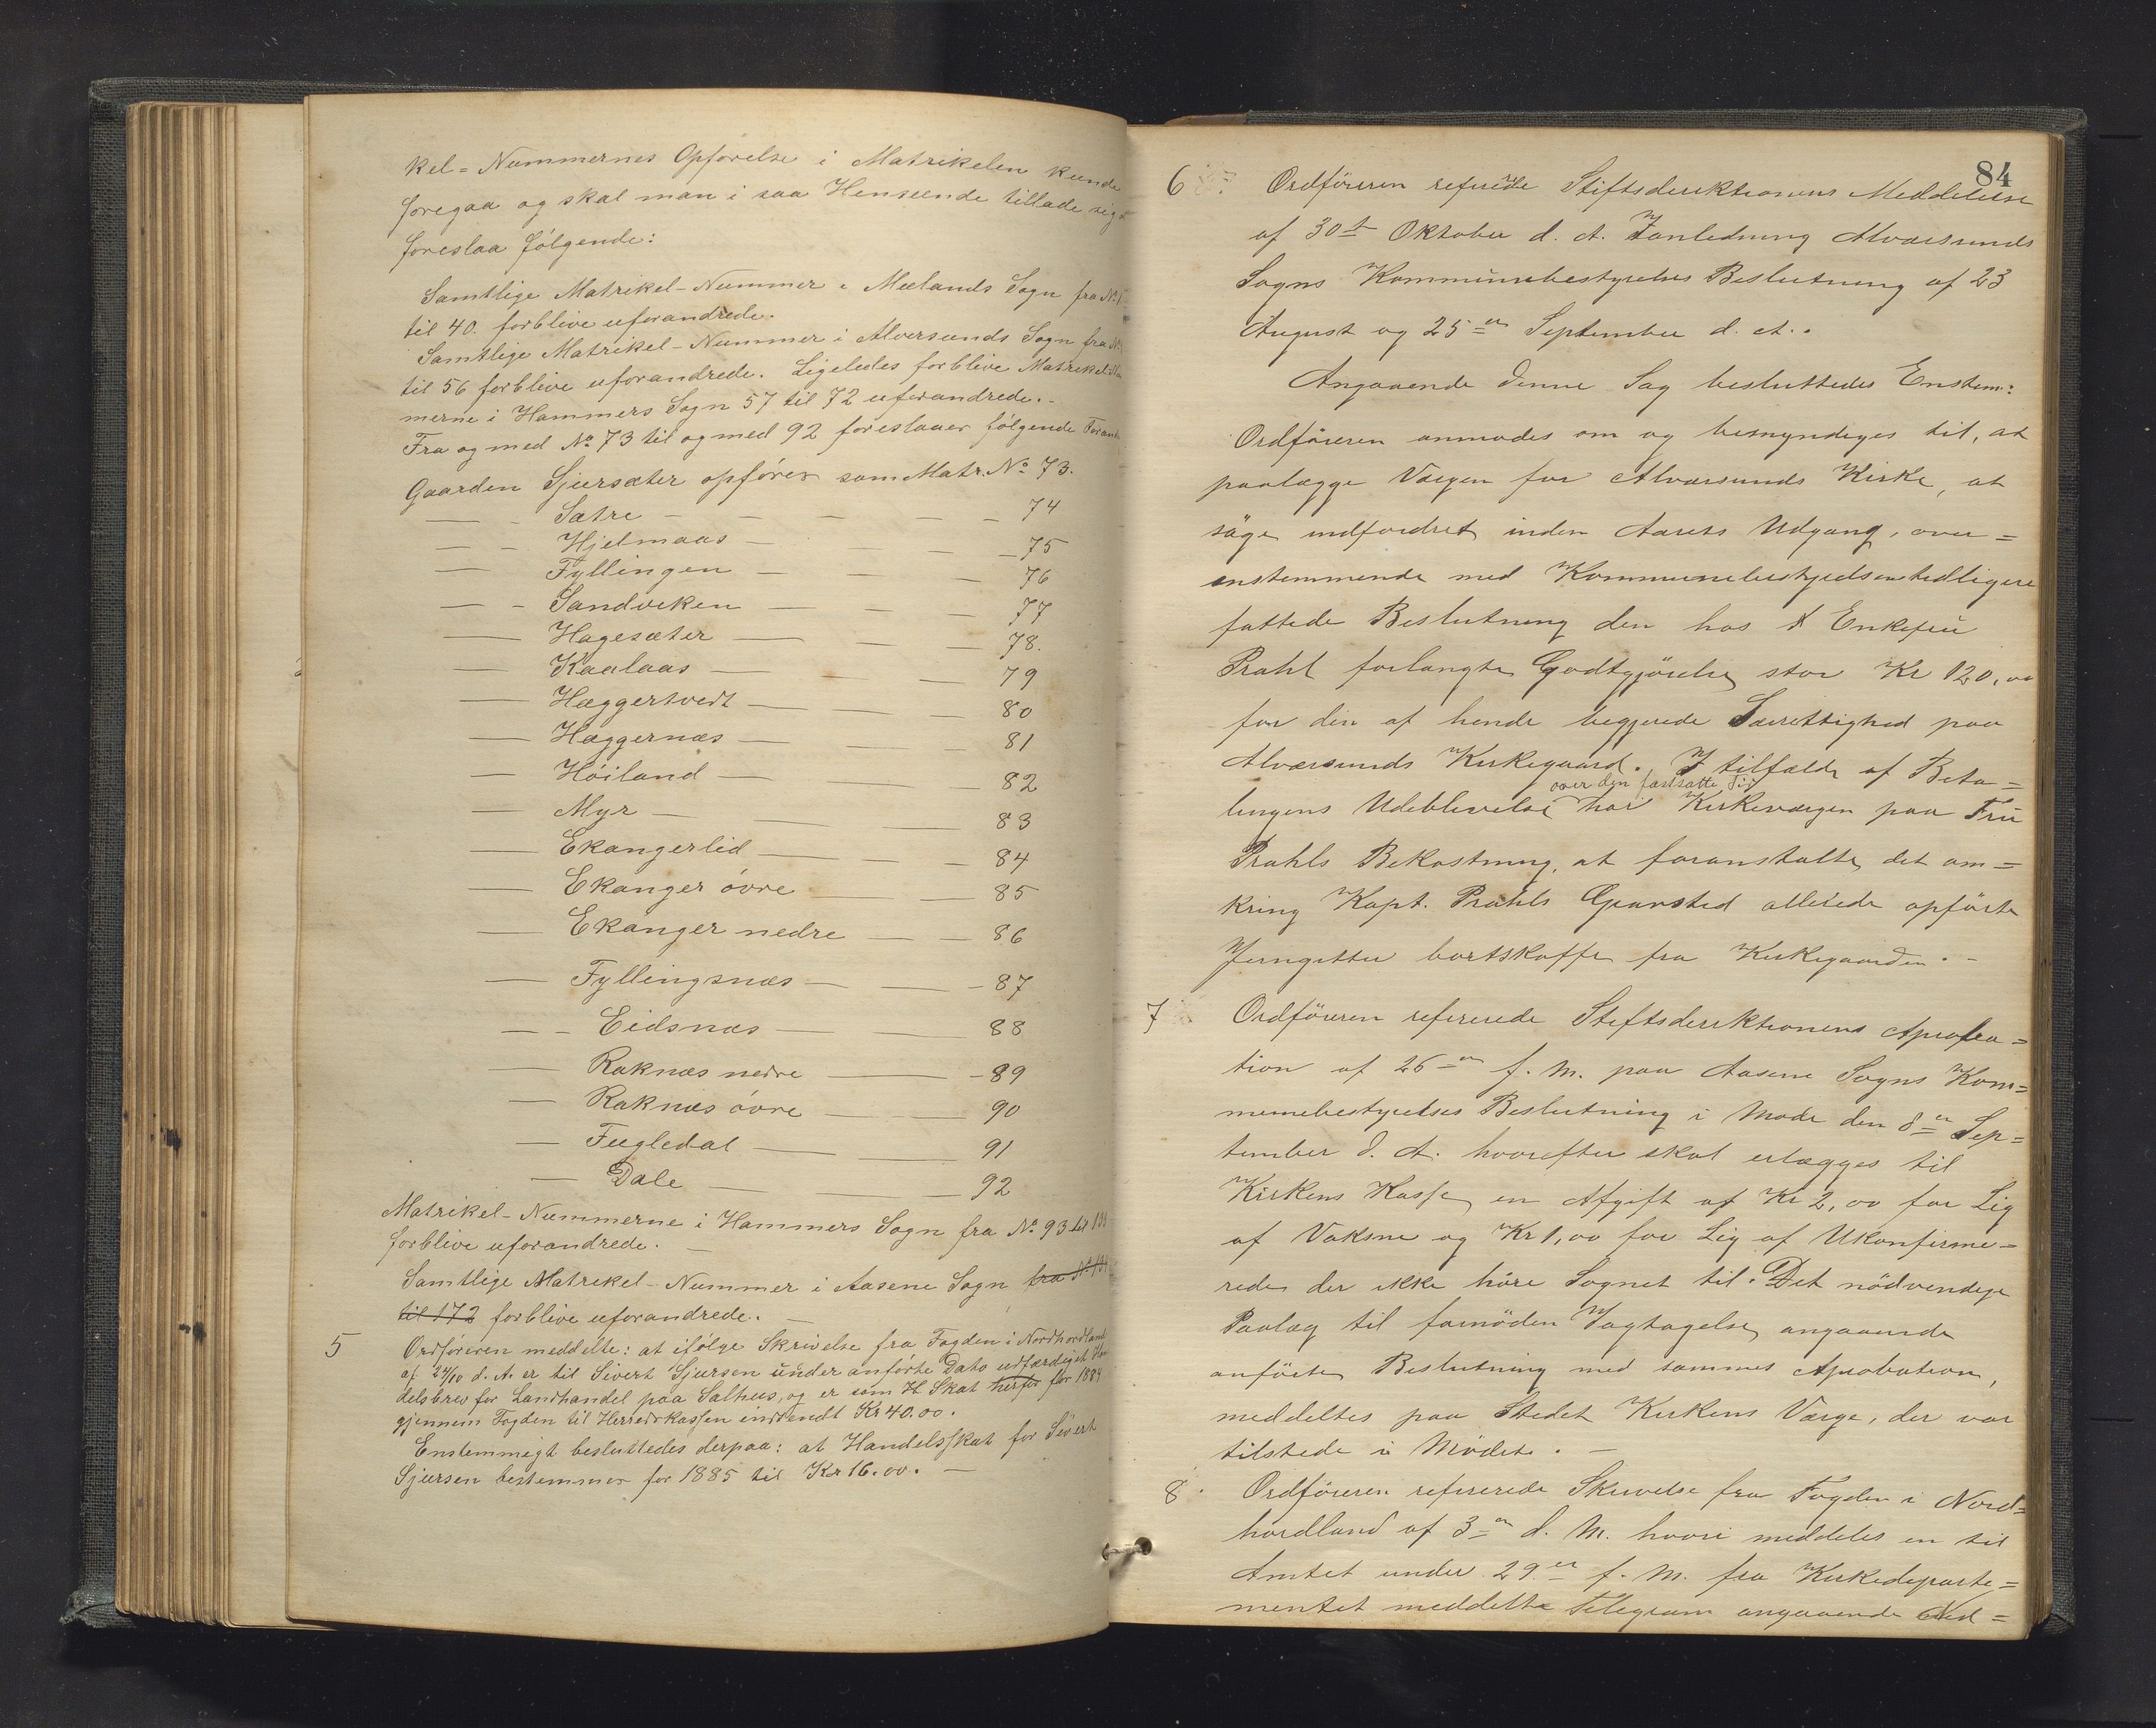 kel=Nummernes Opførelse i Matrikelen kunde
foregaa og skal man i saa Henseende tillade sig
foreslaa følgende:
Samtlige Matrikel-Nummer i Mælands Sogn fra No 1
til 40. forblive uforandrede.
Samtlige Matrikel-Nummer i Alversunds Sogn fra
til 56 forblive uforandrede. Ligeledes forblive
merne i Hammers Sogn 57 til 72 uforandrede.-
Fra og med No 73 til og med 92 foreslaaer følgende
Gaarden Sjursæter opføres som Matr. No 73.
— - Sætre - - - - - 74
— - Hjelmaas - - - - 75
— Fyllingen - - - 76
— - Sandviken — - — 77
— Hagesæter — — — 78.
— Kaalaas — — — 79
— Hæggertvedt — — — 80
— Hæggernæs — — — 81
— Höiland — — — 82
— Myr — — — 83
— Ekangerlid — — — 84
— Ekanger övre — — 85
— Ekanger nedre — — 86
— Fyllingsnæs — — - 87
— - Eidsnæs — — 88
— Raknæs nedre — - 89
— Raknæs övre — — 90
— Fugledal — — 91
— Dale — — 92
Matrikel-Nummerne i Hammers Sogn fra No 93 til
forblive uforandrede. —
Samtlige Matrikel-Nummer i Aasene Sogn fra No
til 172 forblive uforandrede. —
5 Ordføreren meddelte: at ifølge Skrivelse fra Fogden i Nordhordland
af 24/10 d. A. er til Sivert Sjursen under anførte Dato udfærdiget
delsbrev for Landhandel paa Salhus, og er som H. Skat herfor for 1884
gjennem Fogden til Herredskassen indsendt Kr 40.00.
Enstemmigt besluttedes derpaa: at Handelsskat for Sivert
Sjursen bestemmes for 1885 til Kr 16.00. —
84
6 Ordföreren refererede Stiftsdirektionens Meddelelse
af 30te Oktober d. A. I anledning Alversunds
Sogns Kommunebestyrelses Beslutning af 23
August og 25de September d. A..
Angaaende denne Sag besluttedes Enstem:
Ordföreren anmodes om og bemyndiges til, at
paalægge Værgen for Alversunds Kirke, at
söge indfordret inden Aarets Udgang, over=
enstemmende med Kommunebestyrelsens tidligere
fattede Beslutning den hos Enkefru
Prahl forlangte Godtgjörelse stor Kr 120,00
for den af hende begjerede Særrettighed paa
Alversunds Kirkegaard. I tilfælde af Beta=
over den fastsatte Tid
lingens Udeblivelse har Kirkeværgen paa Fru
Prahls Bekostning, at foranstalte det om=
kring Kapt. Prahls Gravsted allerede opförte
Jerngitter bortskaffe fra Kirkegaarden. -
7 Ordföreren refererede Stiftsdirektionens Aproba=
tion af 26de f. M. paa Aasene Sogns Kom=
munebestyrelses Beslutning i Möde den 8de Sep=
tember d. A. hvorefter skal erlægges til
Kirkens Kasse en Afgift af Kr 2,00 for Lig
af Voksne og Kr 1,00 for Lig af Ukonfirme=
rede der ikke höre Sognet til. Det nödvendige
Paalæg til fornöden Iagtagelse angaaende
anförte Beslutning med sammes Aprobation,
meddeltes paa Stedet Kirkens Værge, der var
tilstede i Mödet. —
8 Ordföreren refererede Skrivelse fra Fogden i Nord=
hordland af 3de d. M. hvori meddeles en til
Amtet under 29de f. M. fra Kirkedeparte=
mentet meddelte Telegram angaaende